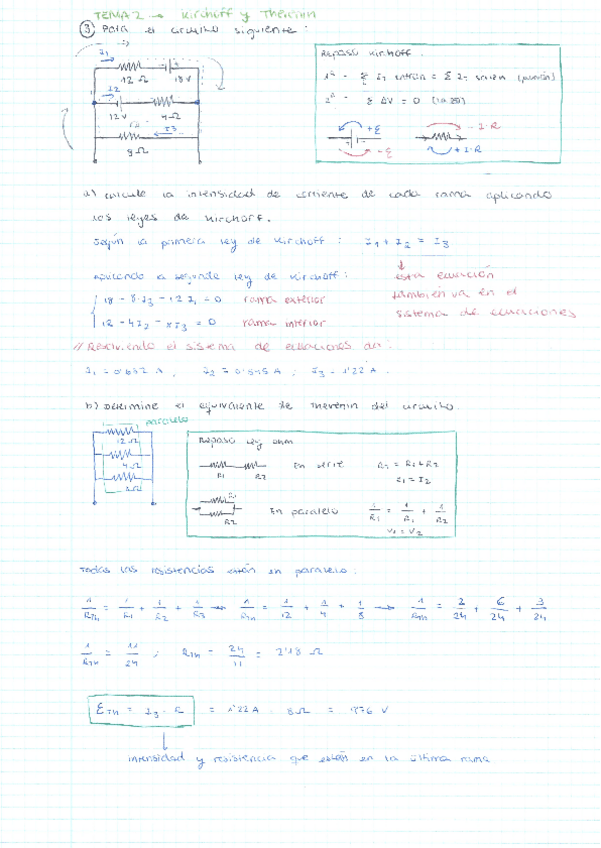 TEMA 2 → Kirchoff y Thevenin
③ Para el circuito siguiente:
I1
12 Ω 18 V
I2
12 V 4 Ω
I3
8 Ω
Repaso Kirchoff.
1ª - Σ I entran = Σ I salen
2ª - Σ ΔV = 0
+ε - I·R
-ε + I·R
a) Calcule la intensidad de corriente de cada rama aplicando
las leyes de Kirchoff.
Según la primera ley de Kirchoff: I1 + I2 = I3
Aplicando la segunda ley de Kirchoff:
esta ecuación
también va en el
sistema de ecuaciones
18 - 8·I3 - 12 I1 = 0 rama exterior
12 - 4I2 - 8I3 = 0 rama interior
// Resolviendo el sistema de ecuaciones da:
I3 = 1'22 A.
b) Determine el equivalente de Thevenin del circuito.
paralelo
12 Ω
4 Ω
8 Ω
Repaso ley ohm
R1 R2 En serie RT = R1 + R2
I1 = I2
R1
R2 En paralelo 1/RT = 1/R1 + 1/R2
V1 = V2
Todas las resistencias están en paralelo:
1/RTh = 1/R1 + 1/R2 + 1/R3 → 1/RTh = 1/12 + 1/4 + 1/8 → 1/RTh = 2/24 + 6/24 + 3/24
1/RTh = 11/24 ; RTh = 24/11 = 2'18 Ω
εTH = I3 · R = 1'22 A · 8 Ω = 9'76 V
intensidad y resistencia que están en la última rama